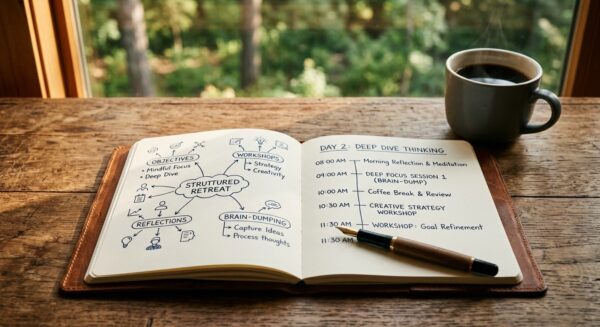 OBJECTIVES
• Mindful Focus
• Deep Dive
WORKSHOPS
→ Strategy
→ Creativity
STRUTTURED
RETREAT
REFLECTIONS
BRAIN-DUMPING
→ Capture Ideas
→ Process thoughts
DAY 2: DEEP DIVE THINKING
08:00 AM Morning Reflection & Meditation
09:00 AM DEEP FOCUS SESSION 1
(BRAIN-DUMP)
10:00 AM Coffee Break & Review
10:30 AM CREATIVE STRATEGY
WORKSHOP
11:30 AM WORKSHOP: Goal Refinement
11:30 AM